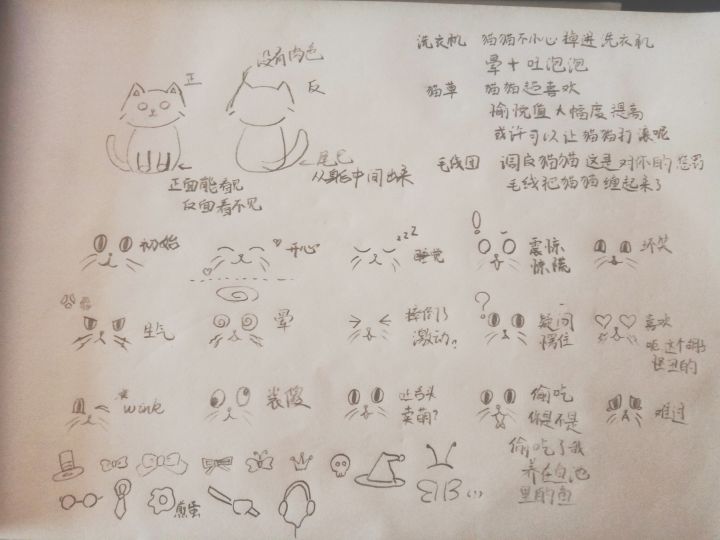 洗衣机 猫猫不小心掉进洗衣机
晕+吐泡泡
猫草 猫猫超喜欢
愉悦值大幅度提高
或许可以让猫猫打滚呢
毛线团 调皮猫猫 这是对你的惩罚
毛线把猫猫缠起来了
没有肉色
正
反
尾巴
从身后中间出来
正面能看见
反面看不见
初始
开心
zzz
睡觉
!
震惊
惊慌
坏笑
生气
晕
摔倒了
激动?
?
疑问
愣住
喜欢
呃这个
怪丑的
wink
装傻
吐舌头
卖萌?
偷吃
你是不是
偷吃了我
养在白池
里的鱼
难过
煎蛋